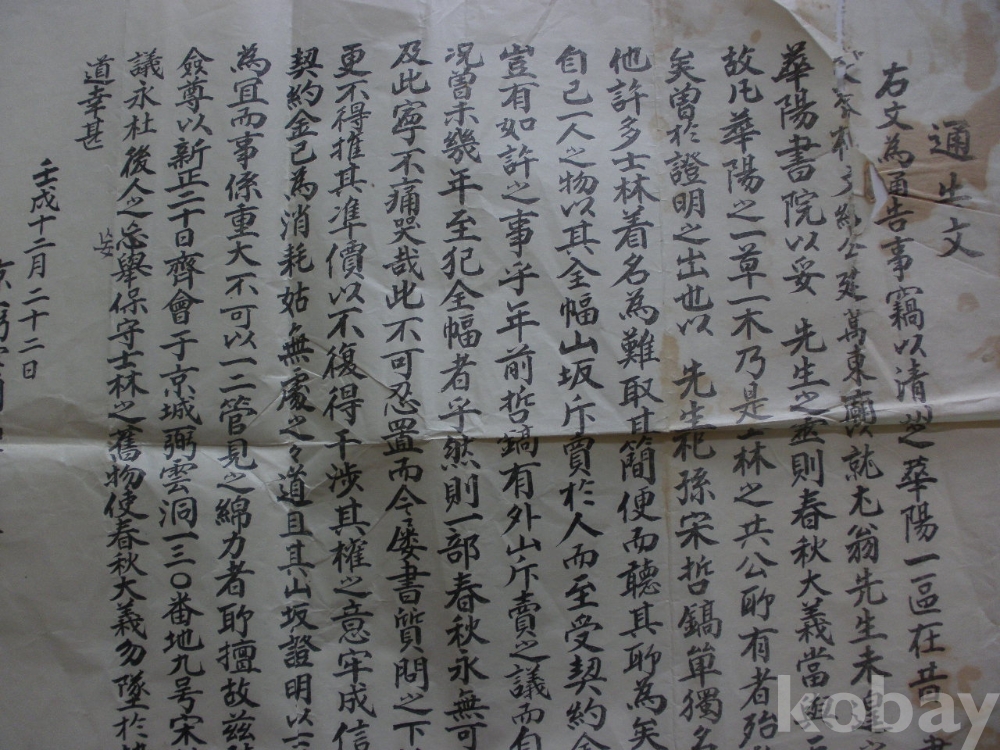 通 文
右文為通告事竊以清 之華陽一區在昔
萬東廟以就尤翁先生未遑
華陽書院以妥 先生之靈則春秋大義當
故凡華陽之一草一木乃是士林之共公所有者殆
矣曾於證明之出也以 先生祀孫宋哲鎬單獨名
他許多士林着名為難取其簡便而聽其所為矣
自己一人之物以其全幅山坂斥賣於人而至受契約金
豈有如許之事乎年前哲鎬有外山斥賣之議而自
況曾未幾年至犯全幅者乎然則一部春秋永無可
及此寧不痛哭哉此不可忍置而今屡書質問之下
更不得推其準價以不復得干涉其權之意牢成信
契約金已為消耗姑無處之之道且其山坂證明以
為宜而事係重大不可以一二管見之綿力者所擅故茲
僉尊以新正二十日齊會于京城弼雲洞一三〇番地九号宋
議永杜後人之忘舉保守士林之舊物使春秋大義勿墜於
妄
道幸甚
壬戌十二月二十二日
京 弼雲洞
kobay